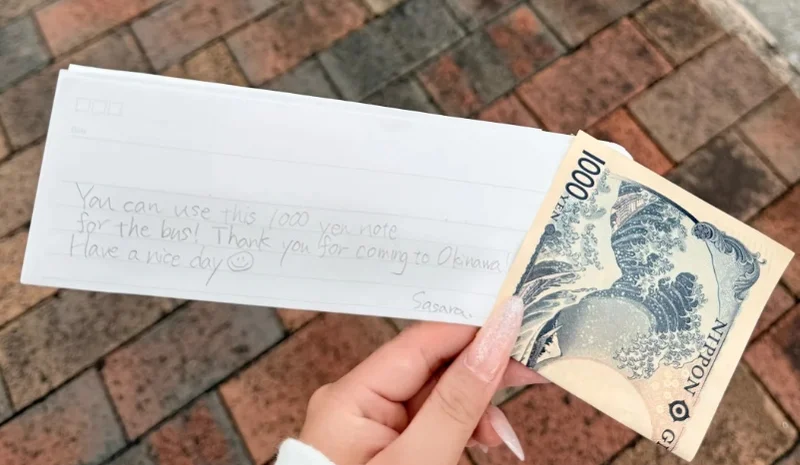 You can use this 1000 yen note
for the bus! Thank you for coming to Okinawa!
Have a nice day
Sasara.
1000
YEN
NIPPON G